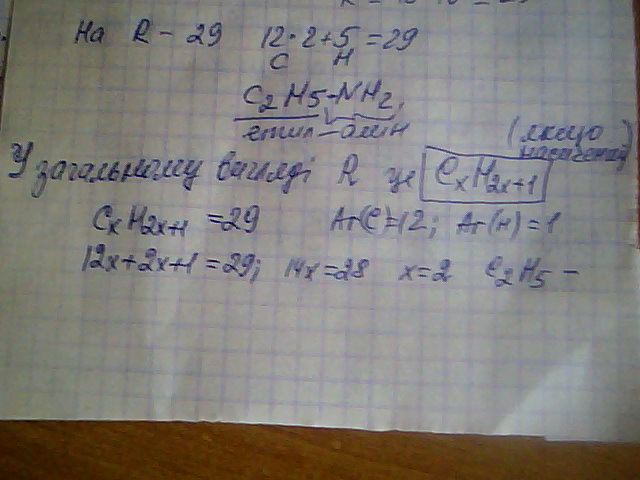 На R - 29 12·2+5=29
C H
C₂H₅-NH₂,
етил-амін
(якщо
насичений)
У загальному вигляді R це CₓH₂ₓ₊₁
CₓH₂ₓ₊₁ =29 Ar(C)=12; Ar(H)=1
12x+2x+1=29; 14x=28 x=2 C₂H₅ -